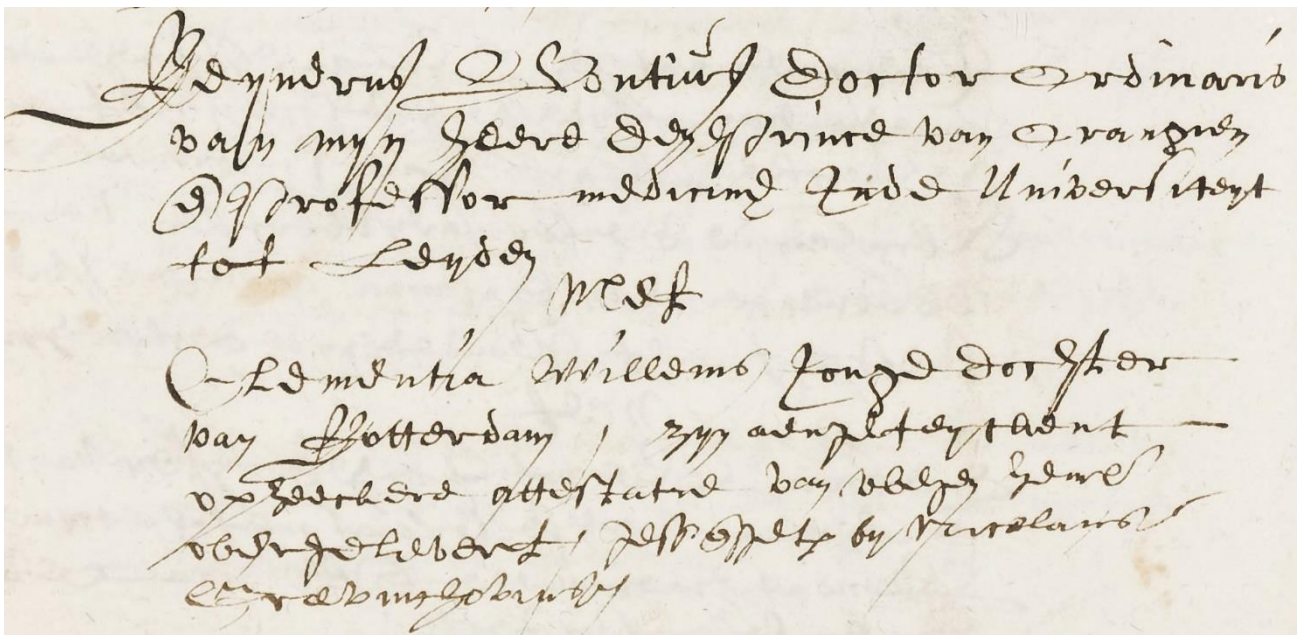 Reynerus Bontius Doctor Ordinaris
van mijn heere den prince van Orangien
en professor medicine Inde Universiteyt
tot Leyden
Met
Clementia Willems Jonge dochter
van Rotterdam, zijn aengeteyckent
op zeeckere attestatie van
overgelevert, by Nicolaus
Grevinchovius